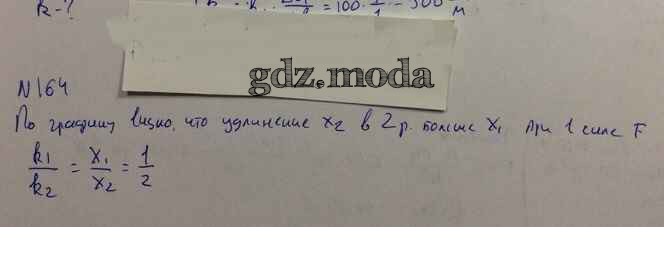 k-?
= 100 ·
gdz.moda
N164
По графику видно, что удлинение x₂ в 2 р. больше x₁ при 1 силе F
k₁/k₂ = x₁/x₂ = 1/2